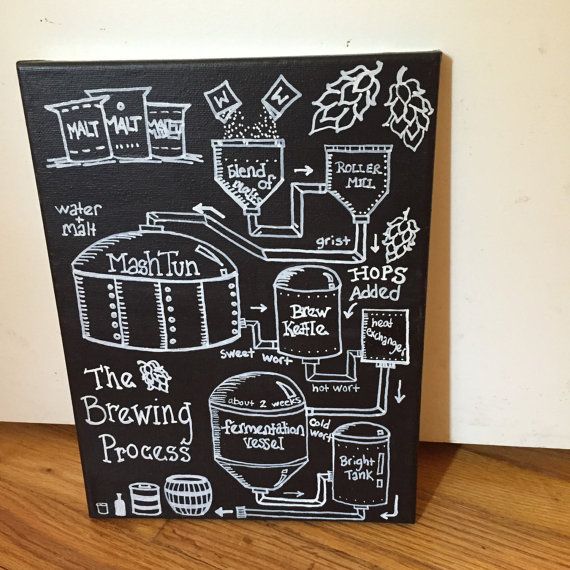 MALT
MALT
MALT
M
M
blend of
malts
ROLLER
MILL
water
+
malt
grist
Mash Tun
HOPS
Added
Brew
Kettle
heat
exchanger
sweet wort
hot wort
The
Brewing
Process
about 2 weeks
fermentation
vessel
cold
wort
Bright
Tank